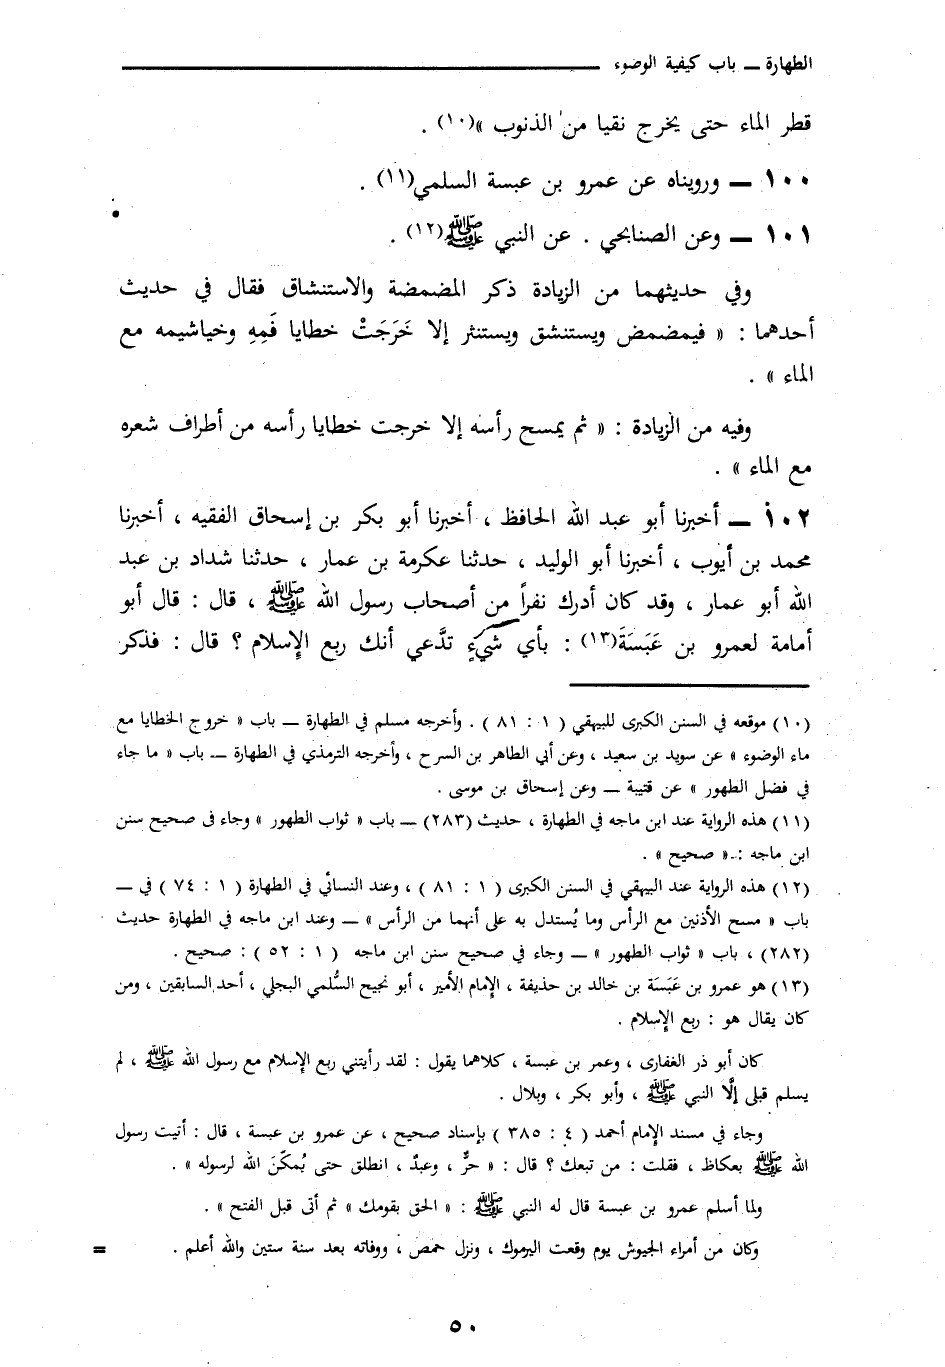 الطهارة ــ باب كيفية الوضوء
قطر الماء حتى يخرج نقيا من الذنوب »(١٠) .
١٠٠ ــ ورويناه عن عمرو بن عبسة السلمي(١١) .
١٠١ ــ وعن الصنابحي . عن النبي ﷺ(١٢) .
وفي حديثهما من الزيادة ذكر المضمضة والاستنشاق فقال في حديث
أحدهما : « فيمضمض ويستنشق ويستنثر إلا خَرَجَتْ خطايا فَمِهِ وخياشيمه مع
الماء » .
وفيه من الزيادة : « ثم يمسح رأسه إلا خرجت خطايا رأسه من أطراف شعره
مع الماء » .
١٠٢ ــ أخبرنا أبو عبد الله الحافظ ، أخبرنا أبو بكر بن إسحاق الفقيه ، أخبرنا
محمد بن أيوب ، أخبرنا أبو الوليد ، حدثنا عكرمة بن عمار ، حدثنا شداد بن عبد
الله أبو عمار ، وقد كان أدرك نفراً من أصحاب رسول الله ﷺ ، قال : قال أبو
أمامة لعمرو بن عَبَسَةَ(١٣) : بأي شيْءٍ تدَّعي أنك ربع الإسلام ؟ قال : فذكر
(١٠) موقعه في السنن الكبرى للبيهقي ( ١ : ٨١ ) . وأخرجه مسلم في الطهارة ــ باب « خروج الخطايا مع
ماء الوضوء » عن سويد بن سعيد ، وعن أبي الطاهر بن السرح ، وأخرجه الترمذي في الطهارة ــ باب « ما جاء
في فضل الطهور » عن قتيبة ــ وعن إسحاق بن موسى .
(١١) هذه الرواية عند ابن ماجه في الطهارة ، حديث (٢٨٣) ــ باب « ثواب الطهور » وجاء فى صحيح سنن
ابن ماجه :ـ « صحيح » .
(١٢) هذه الرواية عند البيهقي في السنن الكبرى ( ١ : ٨١ ) ، وعند النسائي في الطهارة ( ١ : ٧٤ ) في ــ
باب « مسح الأذنين مع الرأس وما يُستدل به على أنهما من الرأس » ــ وعند ابن ماجه في الطهارة حديث
(٢٨٢) ، باب « ثواب الطهور » ــ وجاء في صحيح سنن ابن ماجه ( ١ : ٥٢ ) : صحيح .
(١٣) هو عمرو بن عَبَسَة بن خالد بن حذيفة ، الإمام الأمير ، أبو نجيح السُّلمي البجلي ، أحد السابقين ، ومن
كان يقال هو : ربع الإسلام .
كان أبو ذر الغفارى ، وعمر بن عبسة ، كلاهما يقول : لقد رأيتني ربع الإسلام مع رسول الله ﷺ ، لم
يسلم قبلى إلَّا النبي ﷺ ، وأبو بكر ، وبلال .
وجاء في مسند الإمام أحمد ( ٤ : ٣٨٥ ) بإسناد صحيح ، عن عمرو بن عبسة ، قال : أتيت رسول
الله ﷺ بعكاظ ، فقلت : من تبعك ؟ قال : « حرٌّ ، وعبدٌ ، انطلق حتى يُمكّنَ الله لرسوله » .
ولما أسلم عمرو بن عبسة قال له النبي ﷺ : « الحق بقومك » ثم أتى قبل الفتح » .
وكان من أمراء الجيوش يوم وقعت اليرموك ، ونزل حمص ، ووفاته بعد سنة ستين والله أعلم . =
٥٠